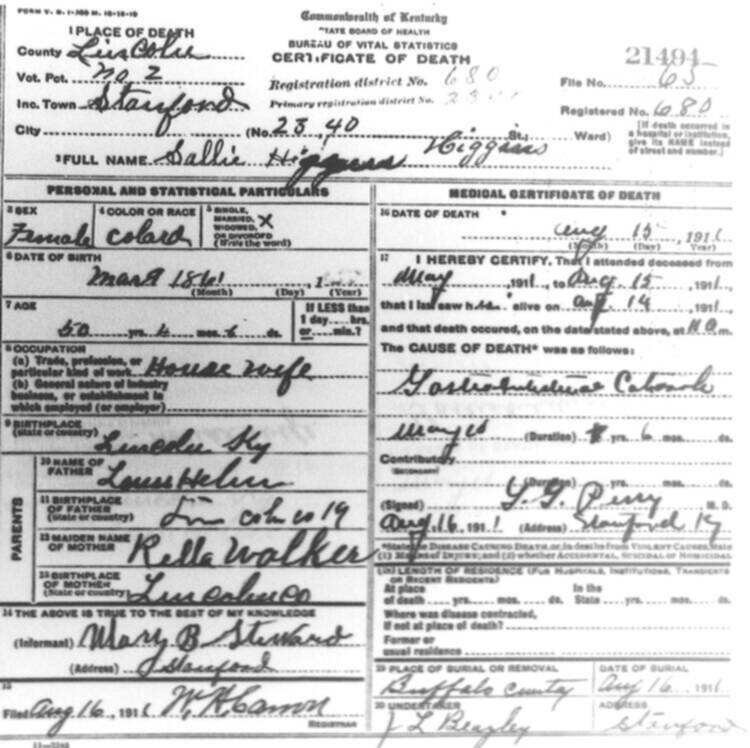 FORM V. S. 1-
Commonwealth of Kentucky
STATE BOARD OF HEALTH
BUREAU OF VITAL STATISTICS
CERTIFICATE OF DEATH
1 PLACE OF DEATH
County Lincoln
Vot. Pct. No. 2
Inc. Town Stanford
City
Registration district No. 680
Primary registration district No.
21494
File No. 65
Registered No. 680
(No. 23,40 St., Ward)
[If death occurred in a hospital or institution, give its NAME instead of street and number.]
2 FULL NAME Sallie Higgins Higgins
PERSONAL AND STATISTICAL PARTICULARS
3 SEX Female
4 COLOR OR RACE Colard
5 SINGLE, MARRIED, WIDOWED, OR DIVORCED (Write the word) X
6 DATE OF BIRTH
Mar 9 1861, 1
(Month) (Day) (Year)
7 AGE
50 yrs. 4 mos. 6 ds.
If LESS than 1 day.... hrs. or.... min.?
8 OCCUPATION
(a) Trade, profession, or particular kind of work House wife
(b) General nature of industry business, or establishment in which employed (or employer)
9 BIRTHPLACE
(State or country) Lincoln Ky
PARENTS
10 NAME OF FATHER Louis Helm
11 BIRTHPLACE OF FATHER (State or country)
12 MAIDEN NAME OF MOTHER Rella Walker
13 BIRTHPLACE OF MOTHER (State or country) Lincoln co
14 THE ABOVE IS TRUE TO THE BEST OF MY KNOWLEDGE
(Informant) Mary B Steward
(Address) Stanford
15
Filed Aug 16, 1911
REGISTRAR
MEDICAL CERTIFICATE OF DEATH
16 DATE OF DEATH
Aug 15, 1911
(Month) (Day) (Year)
17 I HEREBY CERTIFY, That I attended deceased from
May, 1911, to Aug. 15, 1911,
that I last saw h alive on Aug 14, 1911,
and that death occured, on the date stated above, at m.
The CAUSE OF DEATH* was as follows:
Gastrointestinal Catarrh
(Duration) yrs. 6 mos. ds.
Contributory
SECONDARY
(Duration) yrs. mos. ds.
(Signed) Perry M. D.
Aug 16, 1911 (Address) Stanford Ky
*State the DISEASE CAUSING DEATH, or, in deaths from VIOLENT CAUSES, state (1) MEANS OF INJURY; and (2) whether ACCIDENTAL, SUICIDAL or HOMICIDAL
(18) LENGTH OF RESIDENCE (FOR HOSPITALS, INSTITUTIONS, TRANSIENTS OR RECENT RESIDENTS)
At place of death yrs. mos. ds. In the State yrs. mos. ds.
Where was disease contracted, if not at place of death?
Former or usual residence
19 PLACE OF BURIAL OR REMOVAL
Buffalo
DATE OF BURIAL
Aug 16, 1911
20 UNDERTAKER
J L Beazley
ADDRESS
Stanford